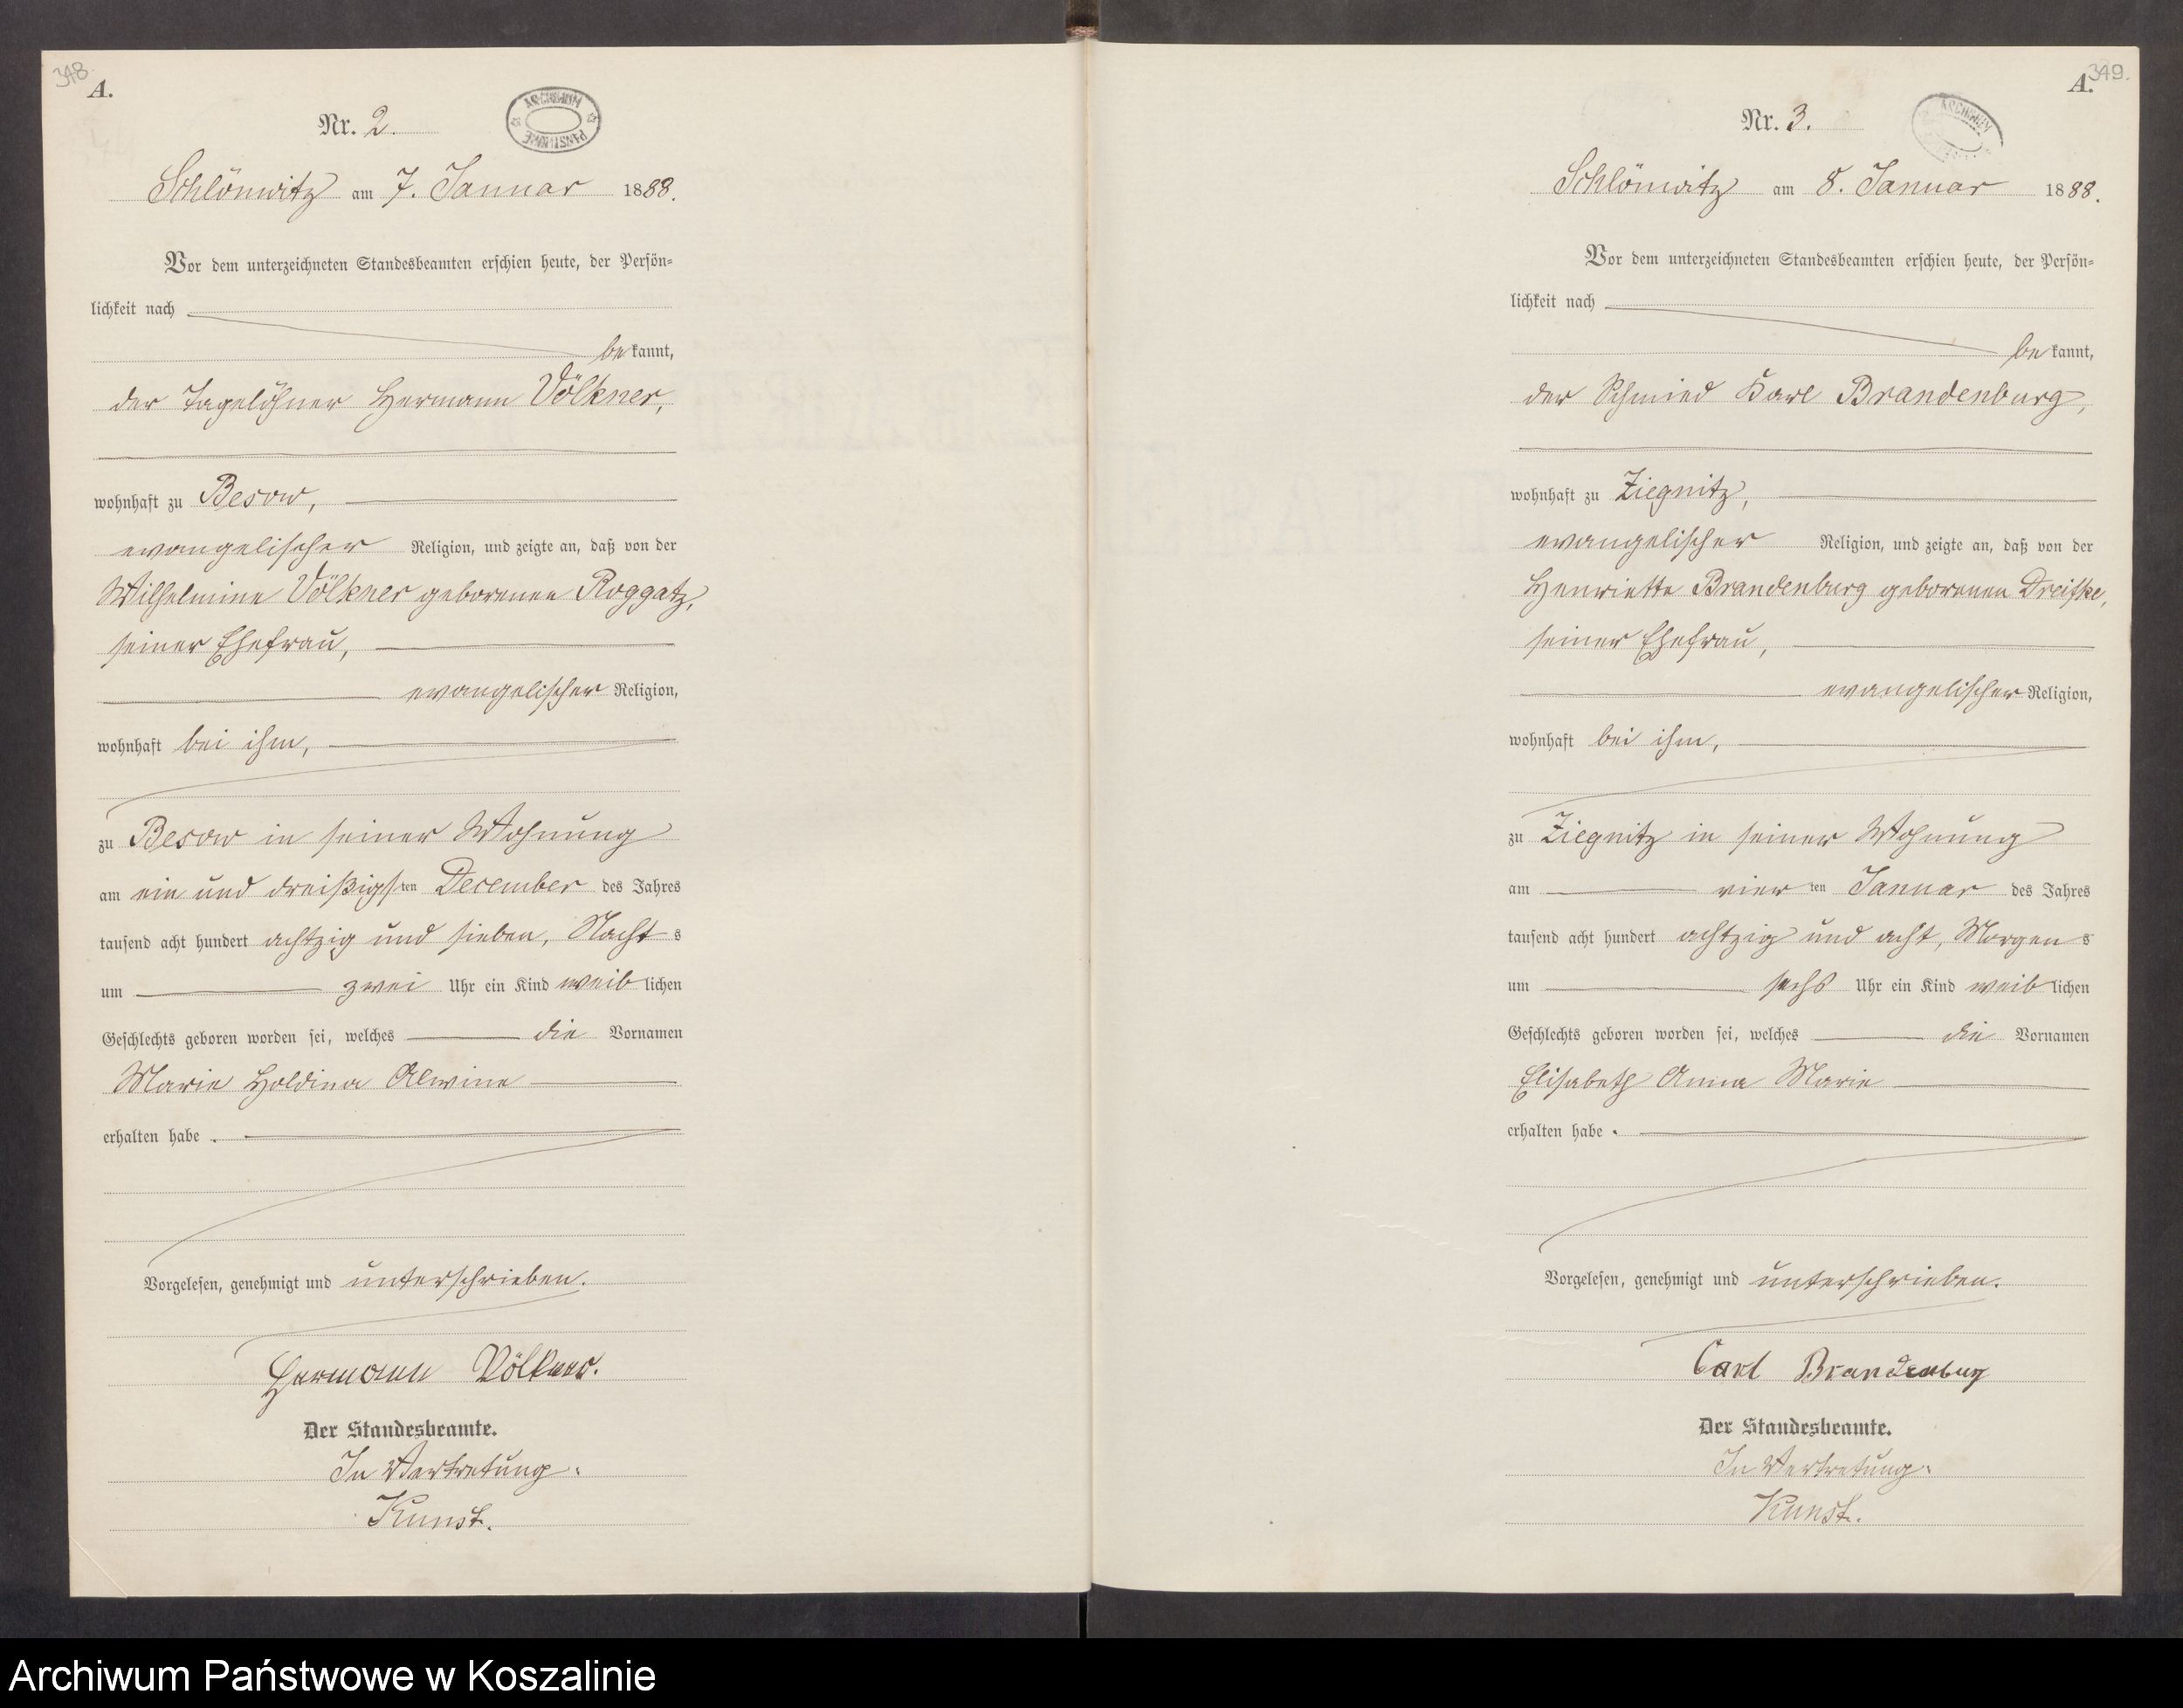 348.
A.
Nr. 2.
ARCHIWUM PAŃSTWOWE
Schlönwitz am 7. Januar 1888.
Vor dem unterzeichneten Standesbeamten erschien heute, der Persön-
lichkeit nach
bekannt,
der Tagelöhner Hermann Völkner,
wohnhaft zu Besow,
evangelischer Religion, und zeigte an, daß von der
Wilhelmine Völkner geborenen Roggatz,
seiner Ehefrau,
evangelischer Religion,
wohnhaft bei ihm,
zu Besow in seiner Wohnung
am ein und dreißigsten December des Jahres
tausend acht hundert achtzig und sieben, Nachts
um zwei Uhr ein Kind weiblichen
Geschlechts geboren worden sei, welches die Vornamen
Marie Holdina Alwine
erhalten habe.
Vorgelesen, genehmigt und unterschrieben.
Hermann Völkner.
Der Standesbeamte.
In Vertretung.
Kunst.
349.
A.
Nr. 3.
ARCHIWUM
Schlönwitz am 8. Januar 1888.
Vor dem unterzeichneten Standesbeamten erschien heute, der Persön-
lichkeit nach
bekannt,
der Schmied Karl Brandenburg,
wohnhaft zu Ziegnitz,
evangelischer Religion, und zeigte an, daß von der
Henriette Brandenburg geborenen Dreifke,
seiner Ehefrau,
evangelischer Religion,
wohnhaft bei ihm,
zu Ziegnitz in seiner Wohnung
am vierten Januar des Jahres
tausend acht hundert achtzig und acht, Morgens
um sechs Uhr ein Kind weiblichen
Geschlechts geboren worden sei, welches die Vornamen
Elisabeth Anna Marie
erhalten habe.
Vorgelesen, genehmigt und unterschrieben.
Carl Brandenburg
Der Standesbeamte.
In Vertretung.
Kunst.
Archiwum Państwowe w Koszalinie